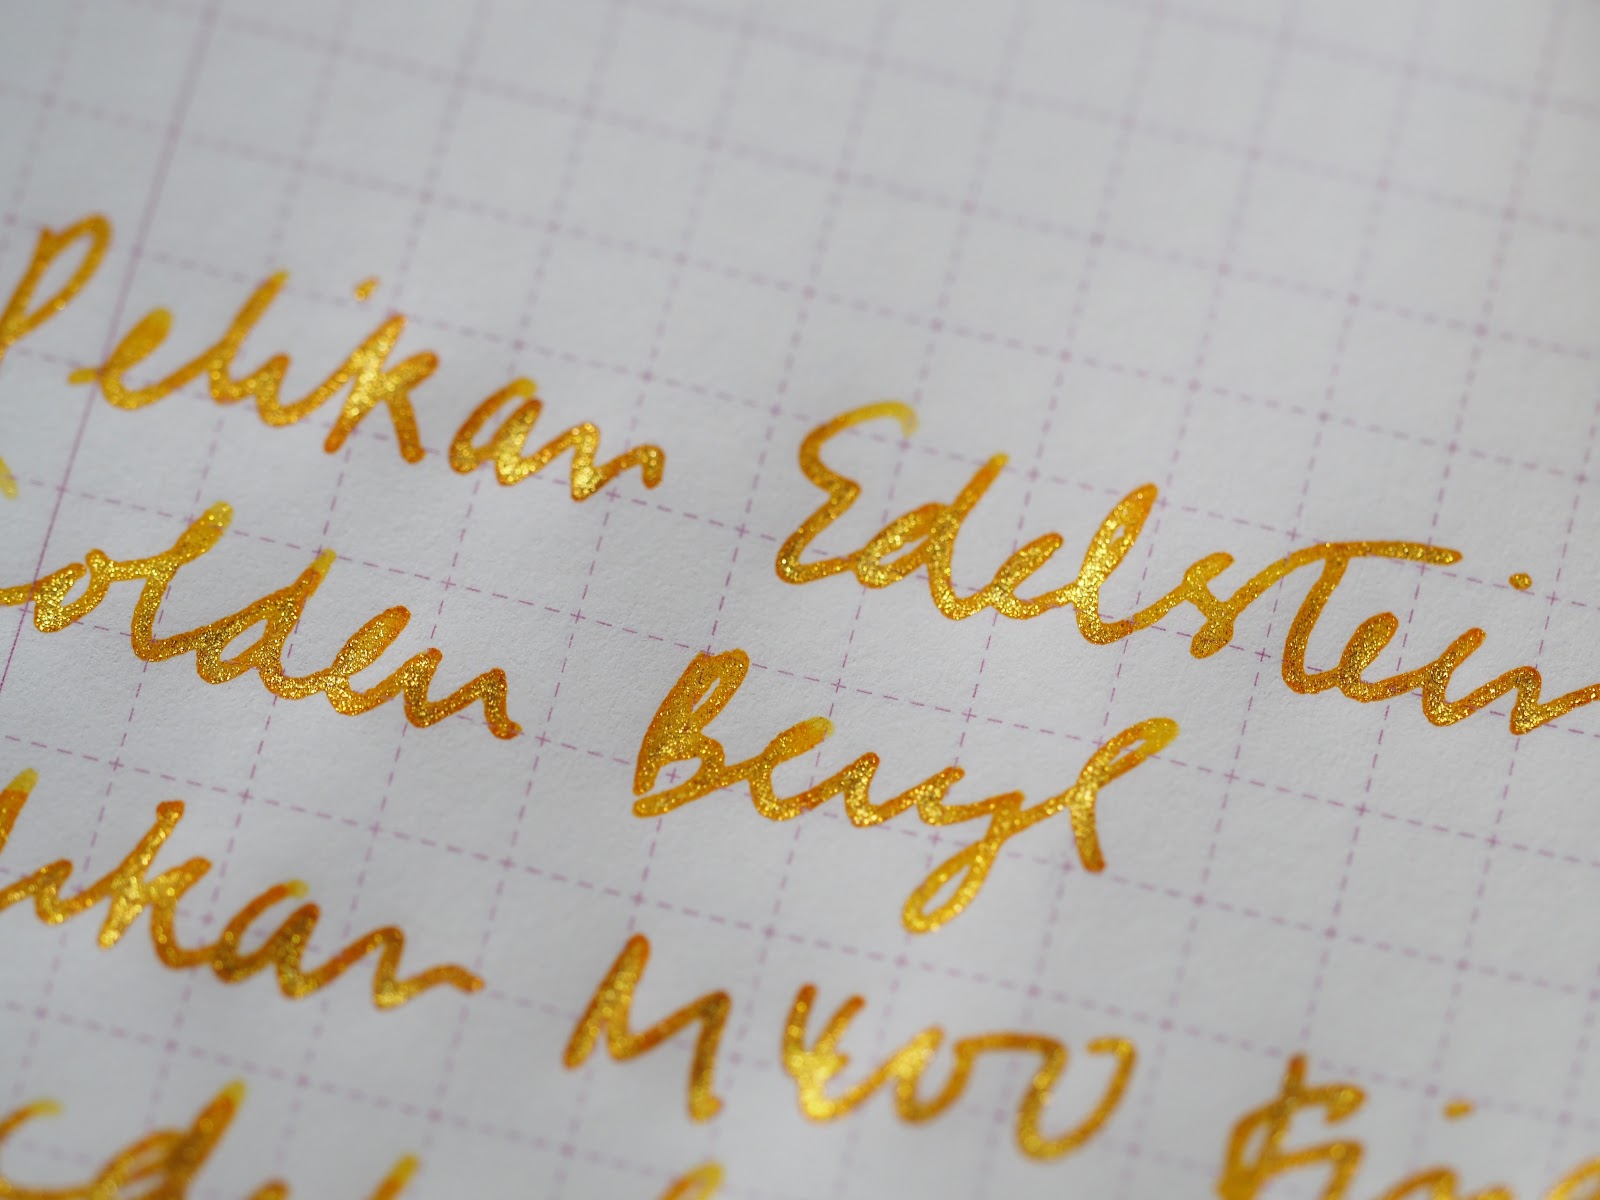 Pelikan Edelstein
olden Beryl
likan M400